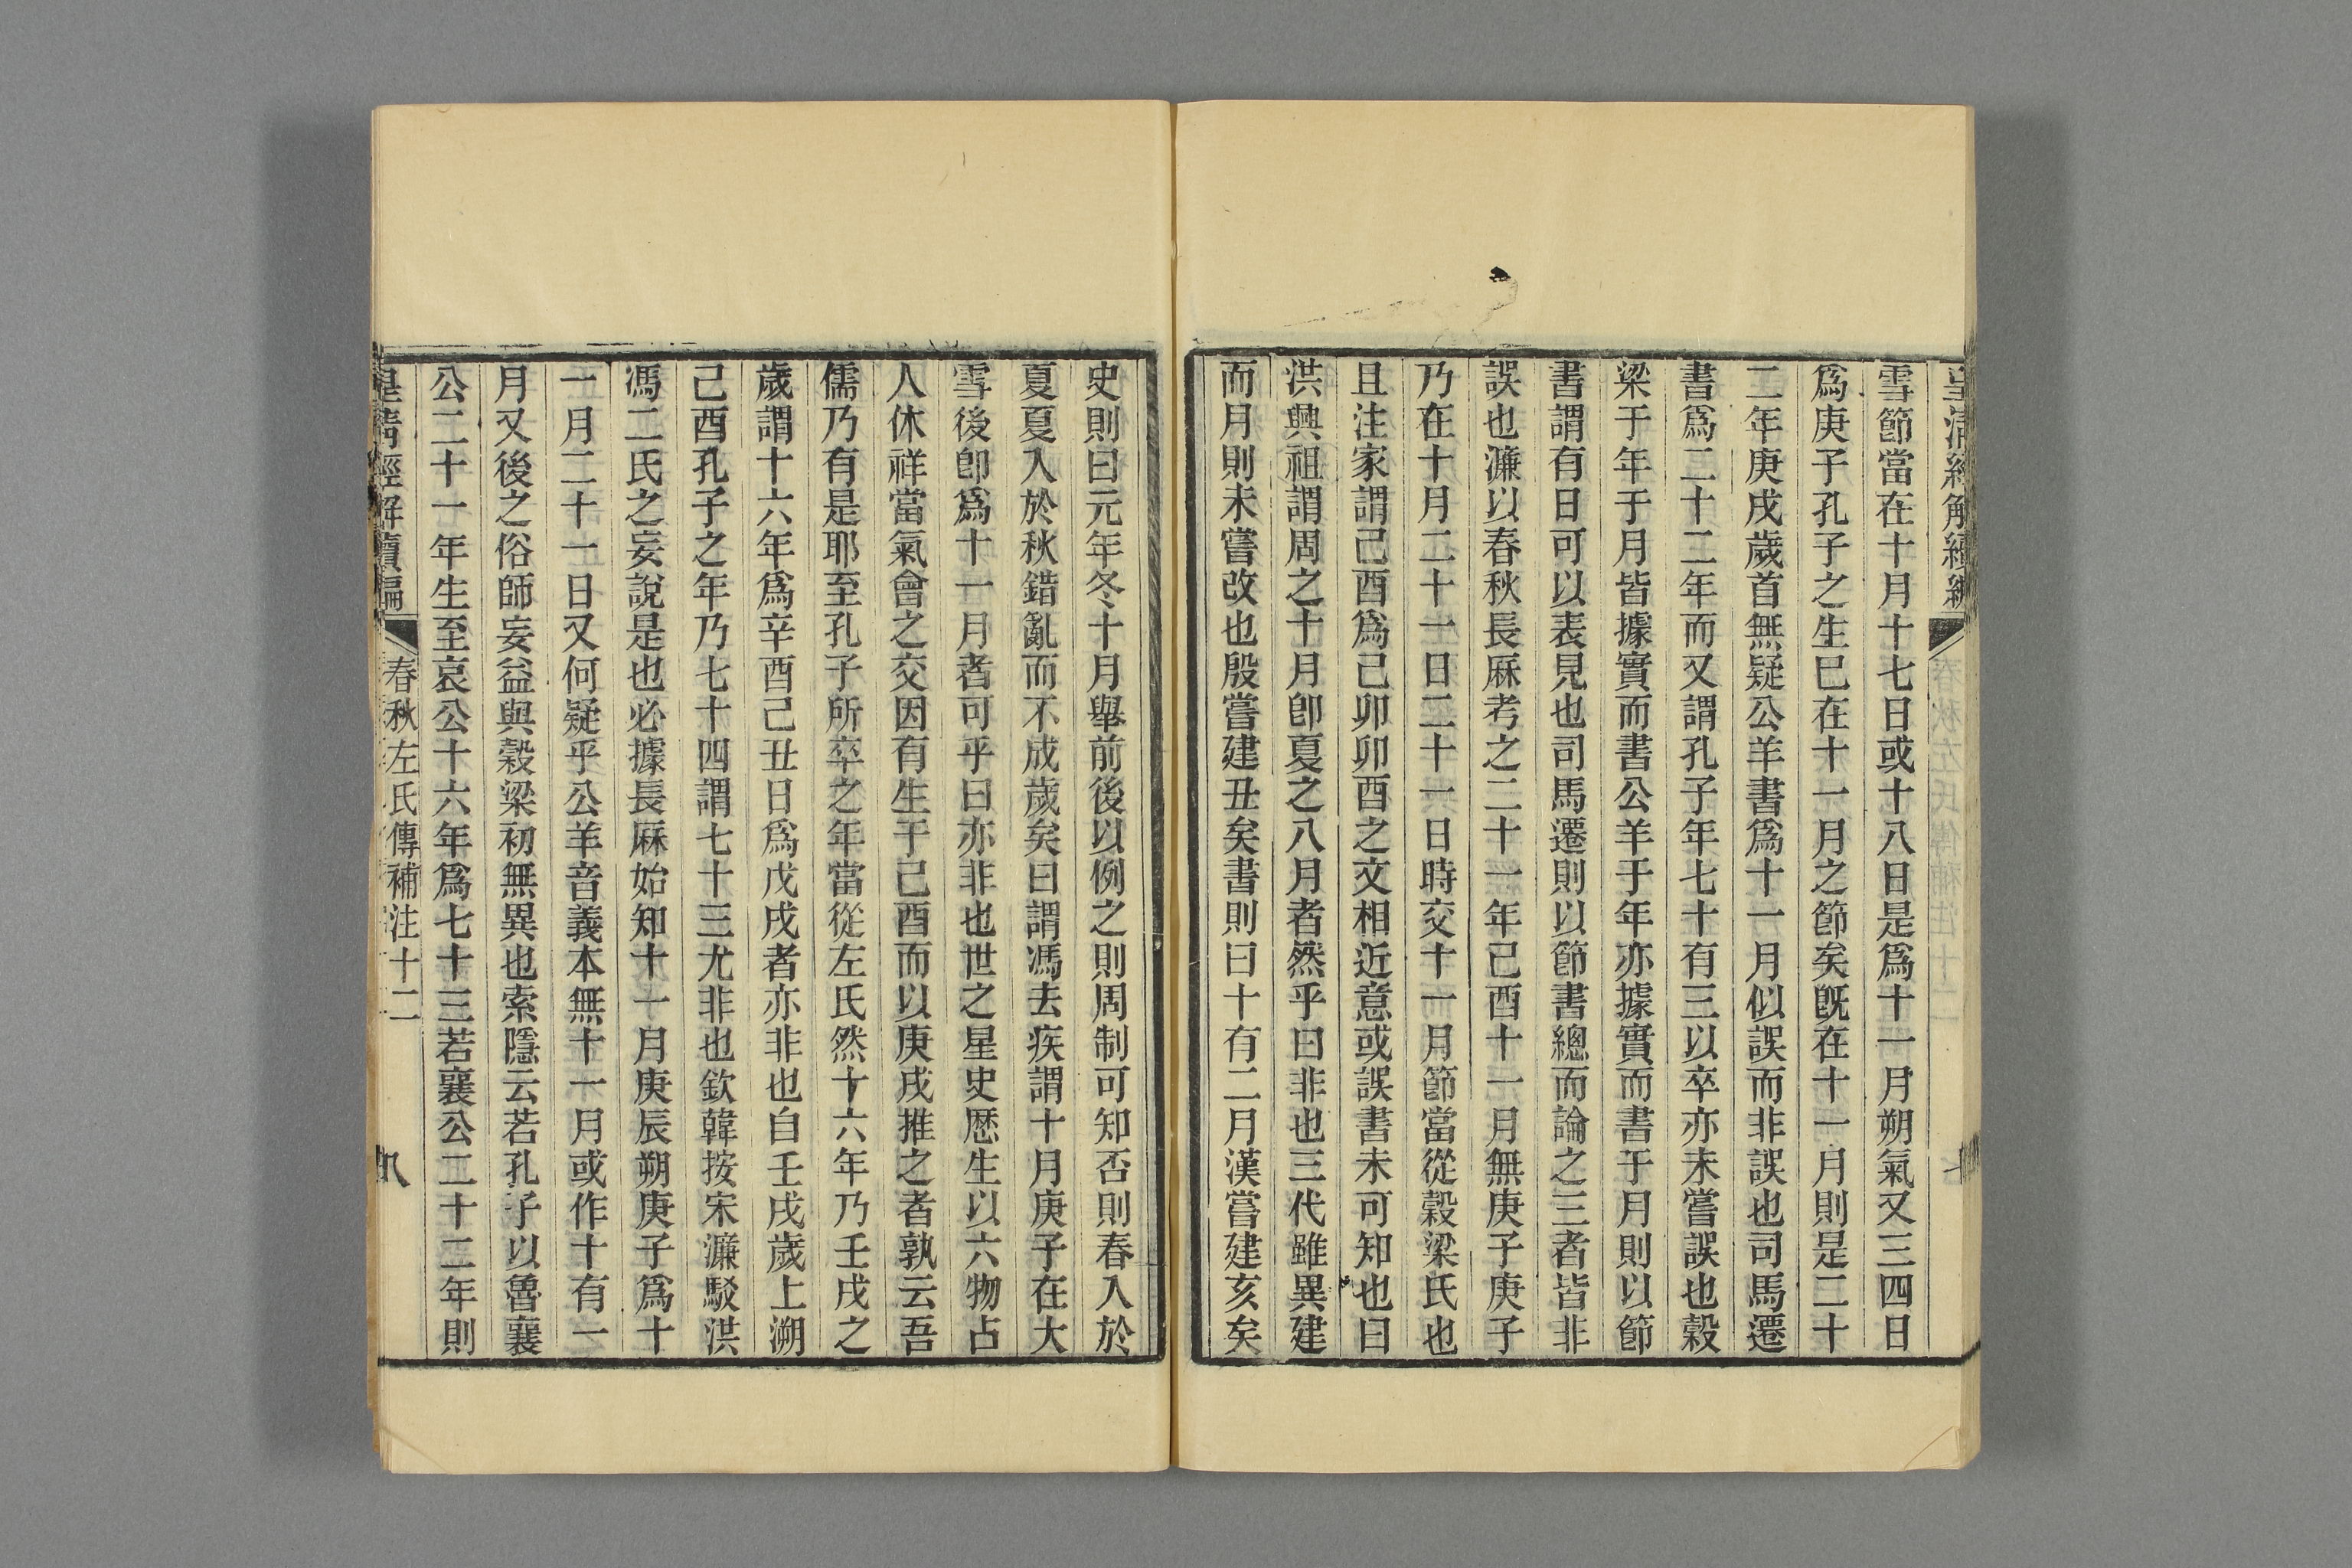 皇清經解續編
雪節當在十月十七日或十八日是爲十一月朔氣又三四日
爲庚子孔子之生巳在十一月之節矣旣在十一月則是二十
二年庚戌歲首無疑公羊書爲十一月似誤而非誤也司馬遷
書爲二十二年而又謂孔子年七十有三以卒亦未嘗誤也穀
梁于年于月皆據實而書公羊于年亦據實而書于月則以節
書謂有日可以表見也司馬遷則以節書總而論之三者皆非
誤也濂以春秋長厤考之二十一年己酉十一月無庚子庚子
乃在十月二十一日二十一日時交十一月節當從穀梁氏也
且注家謂己酉爲己卯卯酉之文相近意或誤書未可知也曰
洪興祖謂周之十月卽夏之八月者然乎曰非也三代雖異建
而月則未嘗改也殷嘗建丑矣書則曰十有二月漢嘗建亥矣
史則曰元年冬十月舉前後以例之則周制可知否則春入於
夏夏入於秋錯亂而不成歲矣曰謂馮去疾謂十月庚子在大
雪後卽爲十一月者可乎曰亦非也世之星史厯生以六物占
人休祥當氣會之交因有生于己酉而以庚戌推之者孰云吾
儒乃有是耶至孔子所卒之年當從左氏然十六年乃壬戌之
歲謂十六年爲辛酉己丑日爲戊戌者亦非也自壬戌歲上溯
己酉孔子之年乃七十四謂七十三尤非也欽韓按宋濂駁洪
馮二氏之妄說是也必據長厤始知十一月庚辰朔庚子爲十
一月二十一日又何疑乎公羊音義本無十一月或作十有一
月又後之俗師妄益與穀梁初無異也索隱云若孔子以魯襄
公二十一年生至哀公十六年爲七十三若襄公二十二年則
皇清經解續編 春秋左氏傳補注十二 八